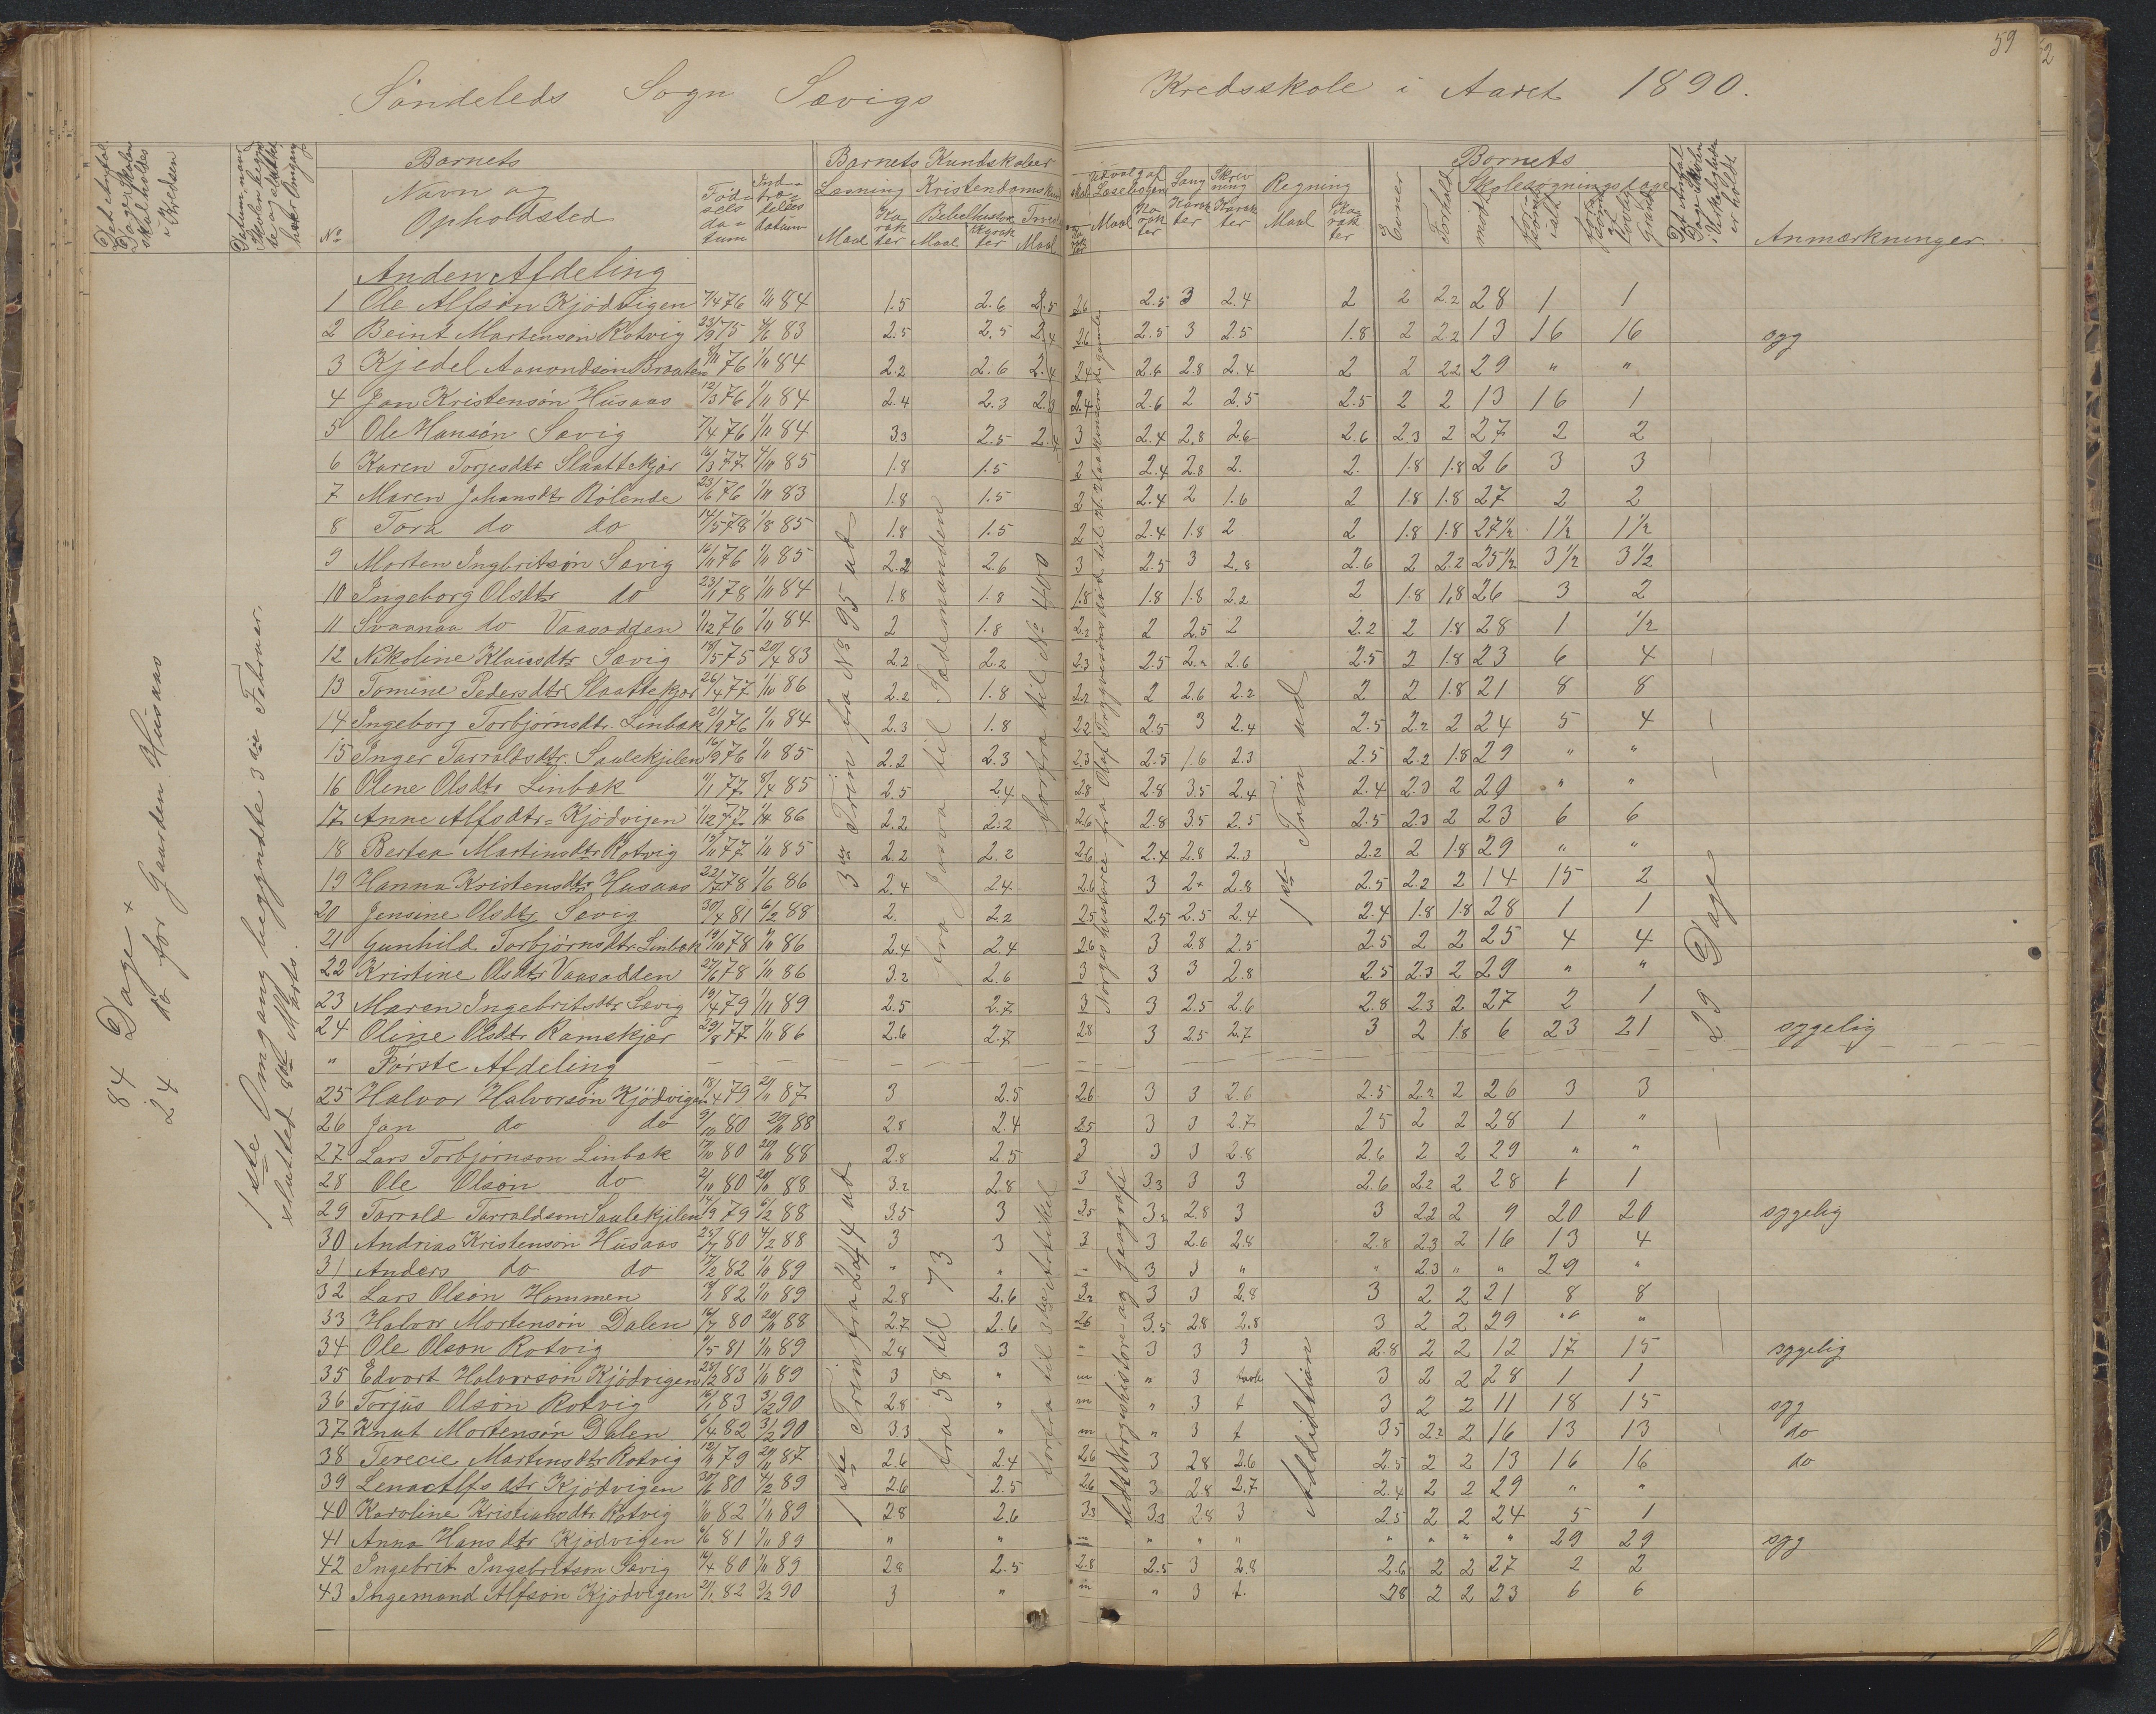 59
52
Söndeleds Sogn Sævigs Kredsskole i Aaret 1890.
Det Antal Dage Skolen skal holdes i Kredsen
Datum, naar Skolen begyndte og sluttede hver Omgang
No
Barnets
Navn og Opholdsted
Födselsdatum
Indtrædelsesdatum
Barnets Kundskaber
Læsning Kristendomskundskab
Maal Karakter
Bibelhistorie
Maal Karakter
Troes
Maal
Udvalg af Læsebogen Sang Skrivning Regning
Maal Karakter Karakter Karakter Maal Karakter
Evner
Forhold
Barnets
Skolesøgningsdage
mødt
forsömt i alt
forsömt af lovlig Grund
Det Antal Dage Skolen i Virkeligheden er holdt
Anmærkninger.
84 Dage +
24 do for Gaarden Husaas
1ste Omgang begyndte 3die Februar.
slutted 8de Marts.
Anden Afdeling
1 Ole Alfsön Kjödvigen 7/4 76 1/11 84 1.5 2.6 2.5 2.6 2.5 3 2.4 2 2 2.2 28 1 1
2 Beint Martenson Rotvig 23/9 75 4/6 83 2.5 2.5 2.4 2.6 2.5 3 2.5 1.8 2 2.2 13 16 16 syg
3 Kjedel Aamondsön Braaten 8/11 76 1/11 84 2.2 2.6 2.4 2.4 2.6 2.8 2.4 2 2 2.2 29 " "
4 Jan Kristensön Husaas 12/3 76 1/11 84 2.4 2.3 2.3 2.4 2.6 2 2.5 2.5 2 2 13 16 1
5 Ole Hansön Sævig 7/4 76 1/11 84 3.3 2.5 2.4 3 2.4 2.8 2.6 2.6 2.3 2 27 2 2
6 Karen Torjesdtr Slaattekjær 16/3 77 4/11 85 1.8 1.5 2 2.4 2.8 2. 2. 1.8 1.8 26 3 3
7 Maren Johansdtr Rölende 23/6 76 1/11 83 1.8 1.5 2 2.4 2 1.6 2 1.8 1.8 27 2 2
8 Tora do do 14/5 78 1/8 85 1.8 1.5 2 2.4 1.8 2 2 1.8 1.8 27½ 1½ 1½
9 Morten Ingbritsön Sævig 16/11 76 1/11 85 2.2 2.6 3 2.5 3 2.8 2.6 2 2.2 25½ 3½ 3½
10 Ingeborg Olsdtr do 23/1 78 1/11 84 1.8 1.8 1.8 1.8 1.8 2.2 2 1.8 1.8 26 3 2
11 Svaanaa do Vaasodden 1/12 76 1/11 84 2 1.8 2.2 2 2.5 2 2.2 2 1.8 28 1 ½
12 Nikoline Klausdtr Sævig 18/5 75 20/4 83 2.2 2.2 2.3 2.5 2.2 2.6 2.5 2 1.8 23 6 4
13 Tomine Pedersdtr Slaattekjær 26/4 77 1/10 86 2.2 1.8 2.2 2 2.6 2.2 2 2 1.8 21 8 8
14 Ingeborg Torbjörnsdtr. Linbæk 21/9 76 1/11 84 2.3 1.8 2.2 2.5 3 2.4 2.5 2.2 2 24 5 4
15 Inger Tarraldsdtr. Saulekjilen 16/9 76 1/11 85 2.2 2.3 2.3 2.5 1.6 2.3 2.5 2.2 1.8 29 " "
16 Oline Olsdtr Linbæk 1/1 77 8/4 85 2.5 2.4 2.8 2.8 3.5 2.4 2.4 2.3 2 29 " "
17 Anne Alfsdtr Kjödvigen 1/12 77 1/4 86 2.2 2.2 2.6 2.8 3.5 2.5 2.5 2.3 2 23 6 6
18 Bertea Martinsdtr Rotvig 13/11 77 1/11 85 2.2 2.2 2.6 2.4 2.8 2.3 2.2 2 1.8 29 " "
19 Hanna Kristensdtr Husaas 22/7 78 1/6 86 2.4 2.4 2.6 3 2+ 2.8 2.5 2.2 2 14 15 2
20 Jensine Olsdtr Sævig 30/4 81 6/2 88 2. 2.2 2.5 2.5 2.5 2.4 2.4 1.8 1.8 28 1 1
21 Gunhild Torbjörnsdtr Linbæk 19/10 78 1/11 86 2.4 2.4 2.6 3 2.8 2.5 2.5 2 2 25 4 4
22 Kristine Olsdtr Vaasodden 27/6 78 1/10 86 3.2 2.6 3 3 3 2.8 2.5 2.3 2 29 " "
23 Maren Ingebritsdtr Sævig 19/4 79 1/11 89 2.5 2.7 3 3 2.5 2.6 2.8 2.3 2 27 2 1
24 Oline Olsdtr Ramskjær 29/8 77 1/11 86 2.6 2.7 2.8 3 2.5 2.7 3 2 1.8 6 23 21 sygelig
" Förste Afdeling
25 Halvor Halvorsön Kjödvigen 18/4 79 2/11 87 3 2.5 2.6 3 3 2.6 2.5 2.2 2 26 3 3
26 Jan do do 9/10 80 20/11 88 2.8 2.4 2.5 3 3 2.7 2.5 2 2 28 1 "
27 Lars Torbjörnson Linbæk 17/10 80 20/11 88 2.8 2.5 3 3 3 2.8 2.6 2 2 29 " "
28 Ole Olsön do 2/11 80 20/11 88 3.2 2.8 3 3.3 3 3 2.6 2.2 2 28 1 1
29 Tarrald Tarraldson Saulekjilen 14/9 79 6/2 88 3.5 3 3.5 3.2 2.8 3 3 2.2 2 9 20 20 sygelig
30 Andrias Kristensön Husaas 25/7 80 4/2 88 3 3 3 3 2.6 2.8 2.8 2.3 2 16 13 4
31 Anders do do 17/2 82 1/11 89 " " " 3 3 " " 2.3 " " 29 "
32 Lars Olsön Hommen 18/11 82 1/11 89 2.8 2.6 3.2 3 3 2.8 3 2 2 21 8 8
33 Halvor Mortensön Dalen 16/7 80 20/11 88 2.7 2.6 2.6 3.5 2.8 2.8 3 2 2 29 " "
34 Ole Olson Rotvig 9/5 81 1/11 89 2.8 3 " 3 3 3 2.8 2 2 12 17 15 sygelig
35 Edvart Halvorsön Kjödvigen 28/12 83 1/11 89 3 " m " 3 tavle 3 2 2 28 1 1
36 Torjus Olsön Rotvig 16/1 83 3/2 90 2.8 " m " 3 t 3 2 2 11 18 15 syg
37 Knut Mortensön Dalen 6/4 82 3/2 90 3.3 " m " 3 t 3.5 2.2 2 16 13 13 do
38 Terecie Martinsdtr Rotvig 12/11 79 21/11 87 2.6 2.4 2.6 3 2.8 2.6 2.5 2 2 13 16 16 do
39 Lena Alfsdtr Kjödvigen 30/6 80 4/2 89 2.6 2.5 2.6 3 2.8 2.7 2.4 2 2 29 " "
40 Karoline Kristiansdtr Rotvig 1/10 82 1/11 89 2.8 2.6 3.3 3.3 2.8 3 2.5 2 2 24 5 1
41 Anna Hansdtr Kjödvigen 6/6 81 1/11 89 " " m " " " " " " " 29 29 syg
42 Ingebrit Ingebritson Sævig 14/4 80 1/11 89 2.8 2.5 2.8 2.5 3 2.8 2.6 2 2 27 2 2
43 Ingemand Alfsön Kjödvigen 21/1 82 3/2 90 3 " m " 3 t. 2.8 2 2 23 6 6
3die Trin fra No 95 ud
fra Josva til Lodemanden
forfra til No 400
Norges historie fra Olaf Trygvesöns Död til
1ste Trin ud
29 Dage
1ste Trin fra 244 ud
fra 58 til 73
forfra til 3die Artikel
Norgeshistorie og Geografi
Addidtian